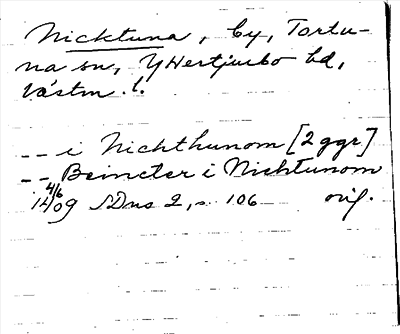 Nicktuna, by, Tortu-
na sn, Yttertjurbo hd,
Västm. l.
-- i Nichthunom [2 ggr]
-- Bemeter i Nichtunom
4/6
1409 SDns 2, s. 106 orig.